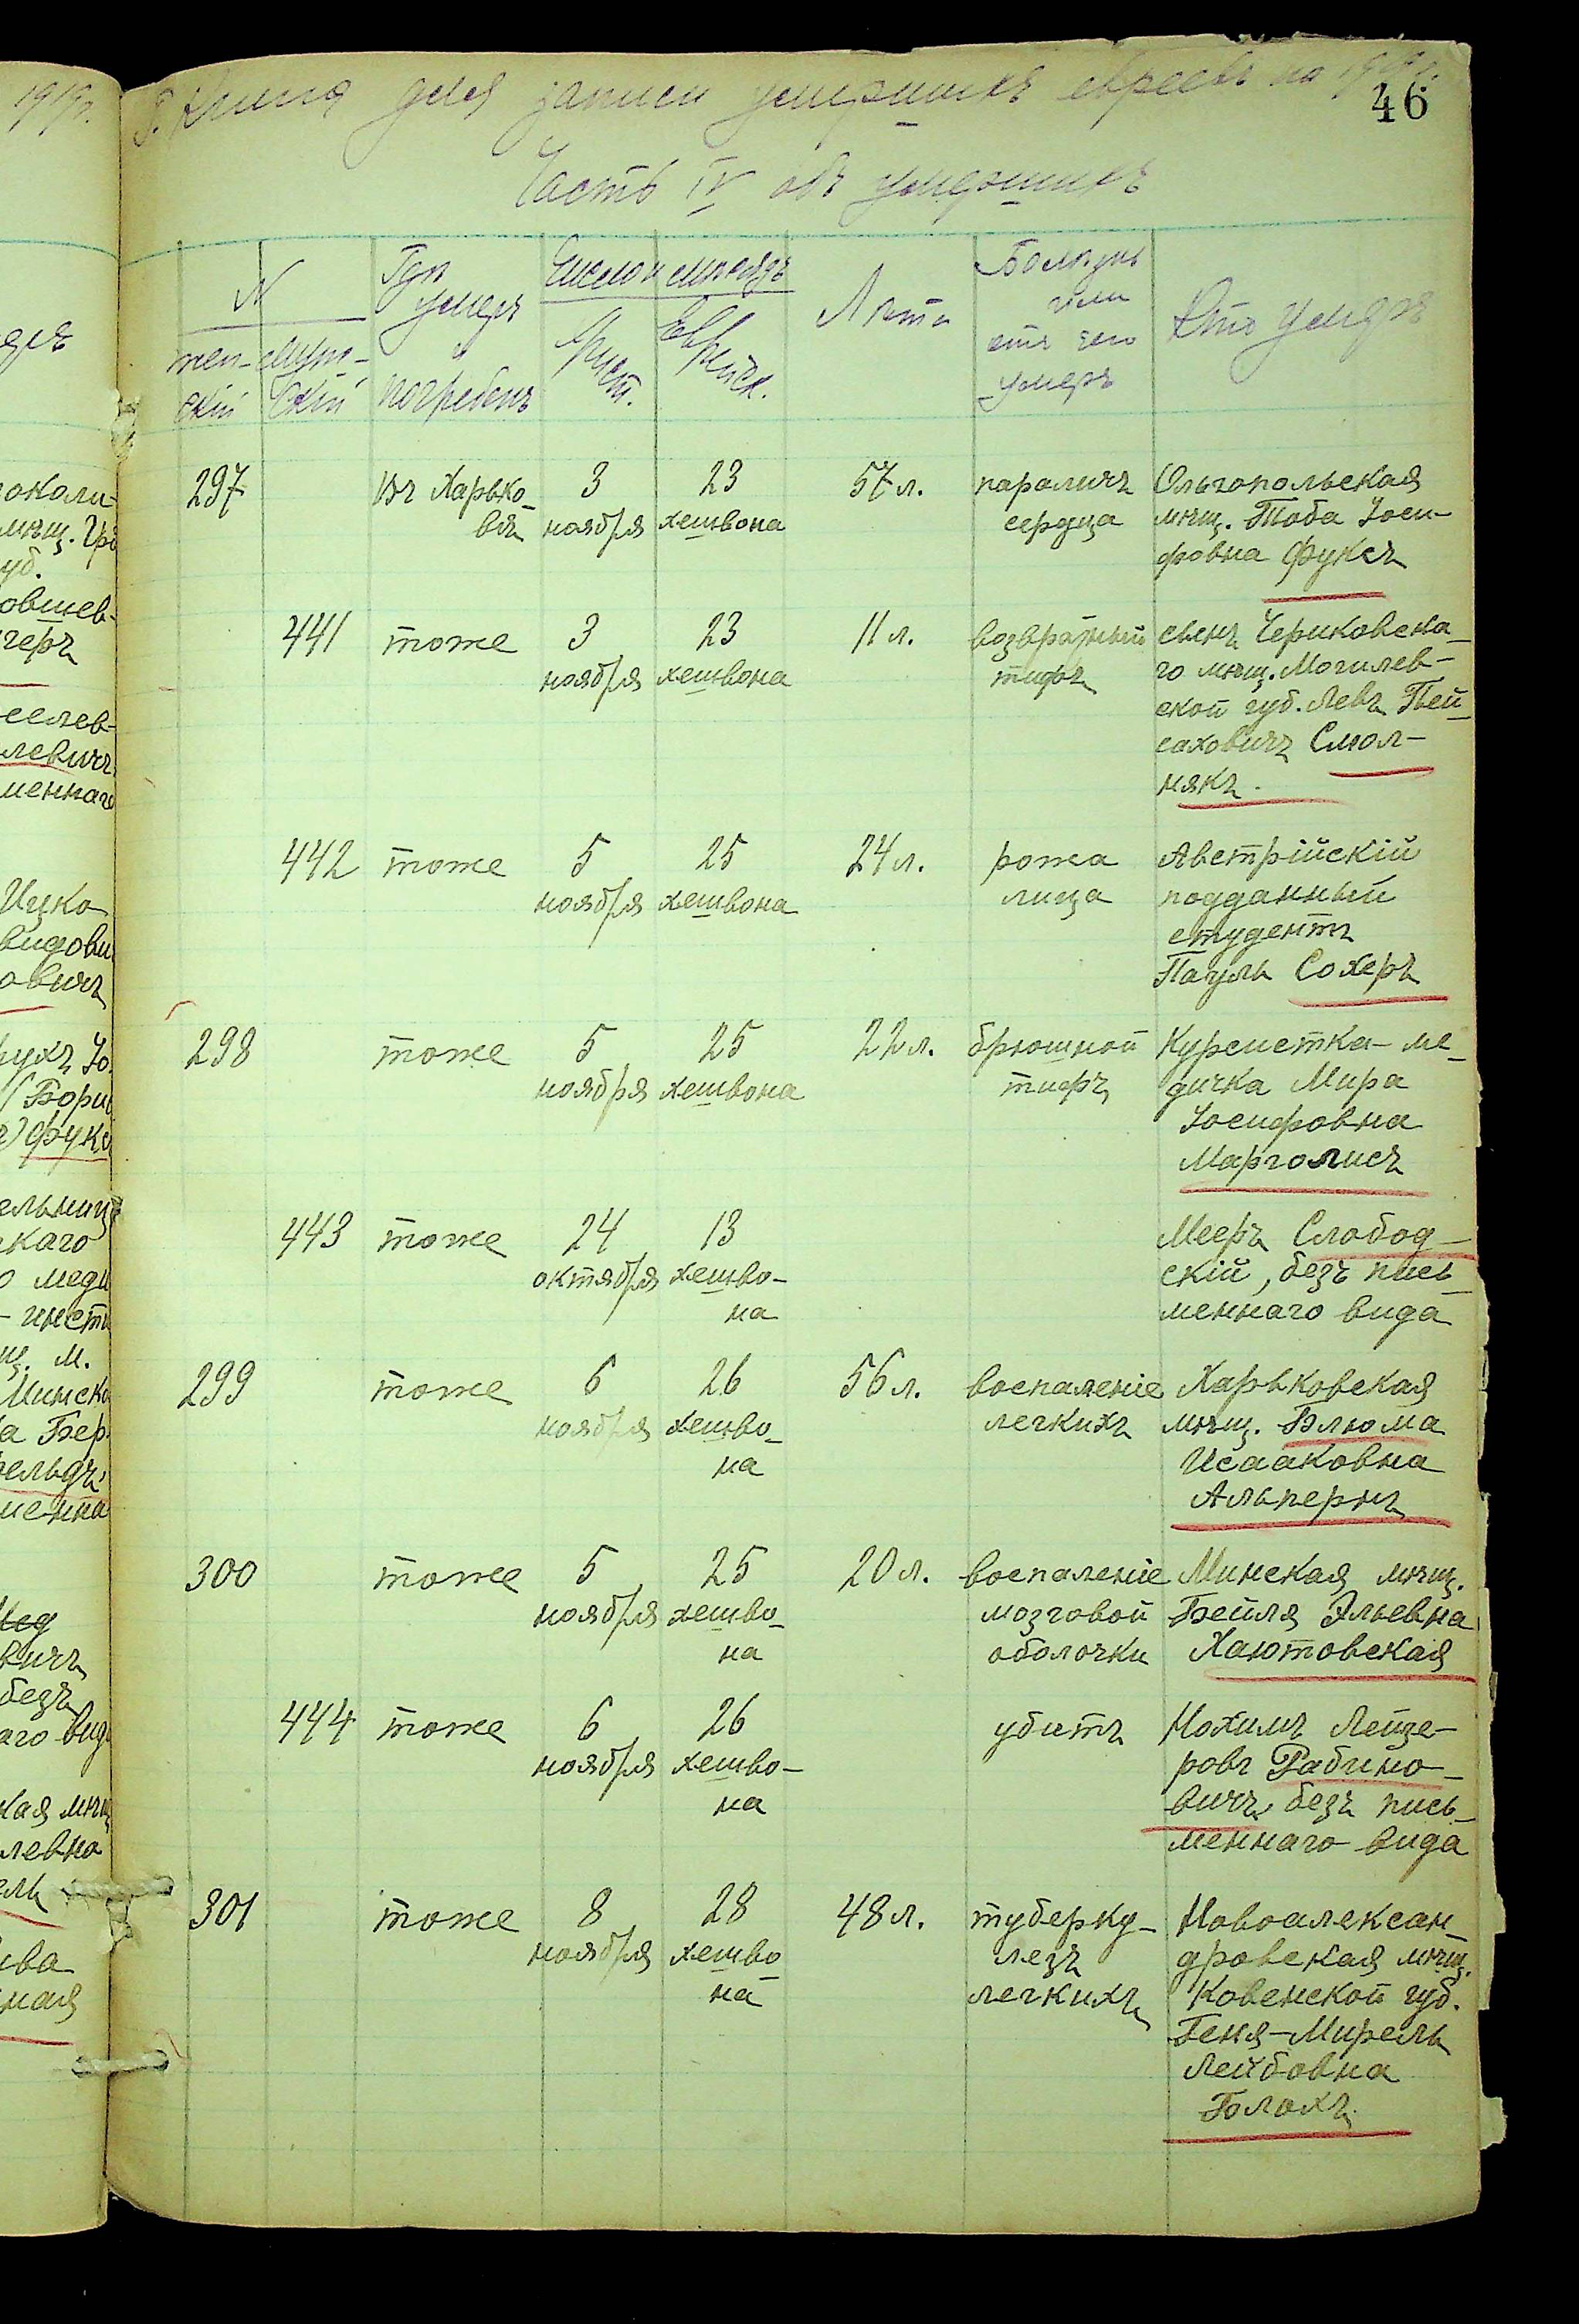 Книга для записи умершихъ евреевъ на 1919г.
46
Часть IV объ умершихъ
N
жен-
скій
муж-
скій
Гдѣ
умеръ
и
погребенъ
Число и мѣсяцъ
Христ.
Еврейск.
Лѣта
Болѣзнь
или
отъ чего
умеръ
Кто умеръ
297
въ Харько-
вѣ
3
ноября
23
хешвона
57 л.
параличъ
сердца
Ольгопольская
мѣщ. Тоба Іоси-
фовна Фуксъ
441
тоже
3
ноября
23
хешвона
11 л.
возвратный
тифъ
сынъ Чериковска-
го мѣщ. Могилев-
ской губ. Левъ Пей-
саховичъ Смол-
някъ.
442
тоже
5
ноября
25
хешвона
24 л.
рожа
лица
Австрійскій
подданный
студентъ
Пауль Сохеръ
298
тоже
5
ноября
25
хешвона
22 л.
брюшной
тифъ
Курсистка-ме-
дичка Мира
Іосифовна
Марголисъ
443
тоже
24
октября
13
хешво-
на
Мееръ Слобод-
скій, безъ пись-
меннаго вида
299
тоже
6
ноября
26
хешво-
на
56 л.
воспаленіе
легкихъ
Харьковская
мѣщ. Блюма
Исааковна
Альпернъ
300
тоже
5
ноября
25
хешво-
на
20 л.
воспаленіе
мозговой
оболочки
Минская мѣщ.
Бейля Эльевна
Хаютовская
444
тоже
6
ноября
26
хешво-
на
убитъ
Нохимъ Лейзе-
ровъ Рабино-
вичъ, безъ пись-
меннаго вида
301
тоже
8
ноября
28
хешво
на
48 л.
туберку-
лезъ
легкихъ
Новоалексан-
дровская мѣщ.
Ковенской губ.
Геня-Мирель
Лейбовна
Голохъ.